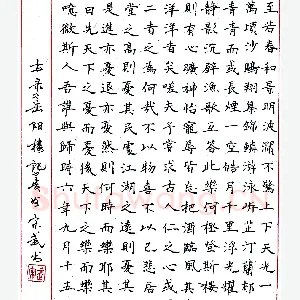 至若春和景明波瀾不驚上下天光一
萬頃沙鷗翔集錦鱗游泳岸芷汀蘭郁
青青而或長煙一空皓月千里浮光耀
靜影沉璧漁歌互答此樂何極登斯樓
則有心曠神怡寵辱皆忘把酒臨風其
洋洋者矣嗟夫予嘗求古人仁之心或
二者之為何哉不以物喜不以己悲居
堂之高則憂其民處江湖之遠則憂其
是進亦憂退亦憂然則何時而樂耶其
曰先天下之憂而憂後天下之樂而樂
噫微斯人吾誰與歸時六年九月十五
岳阳樓記